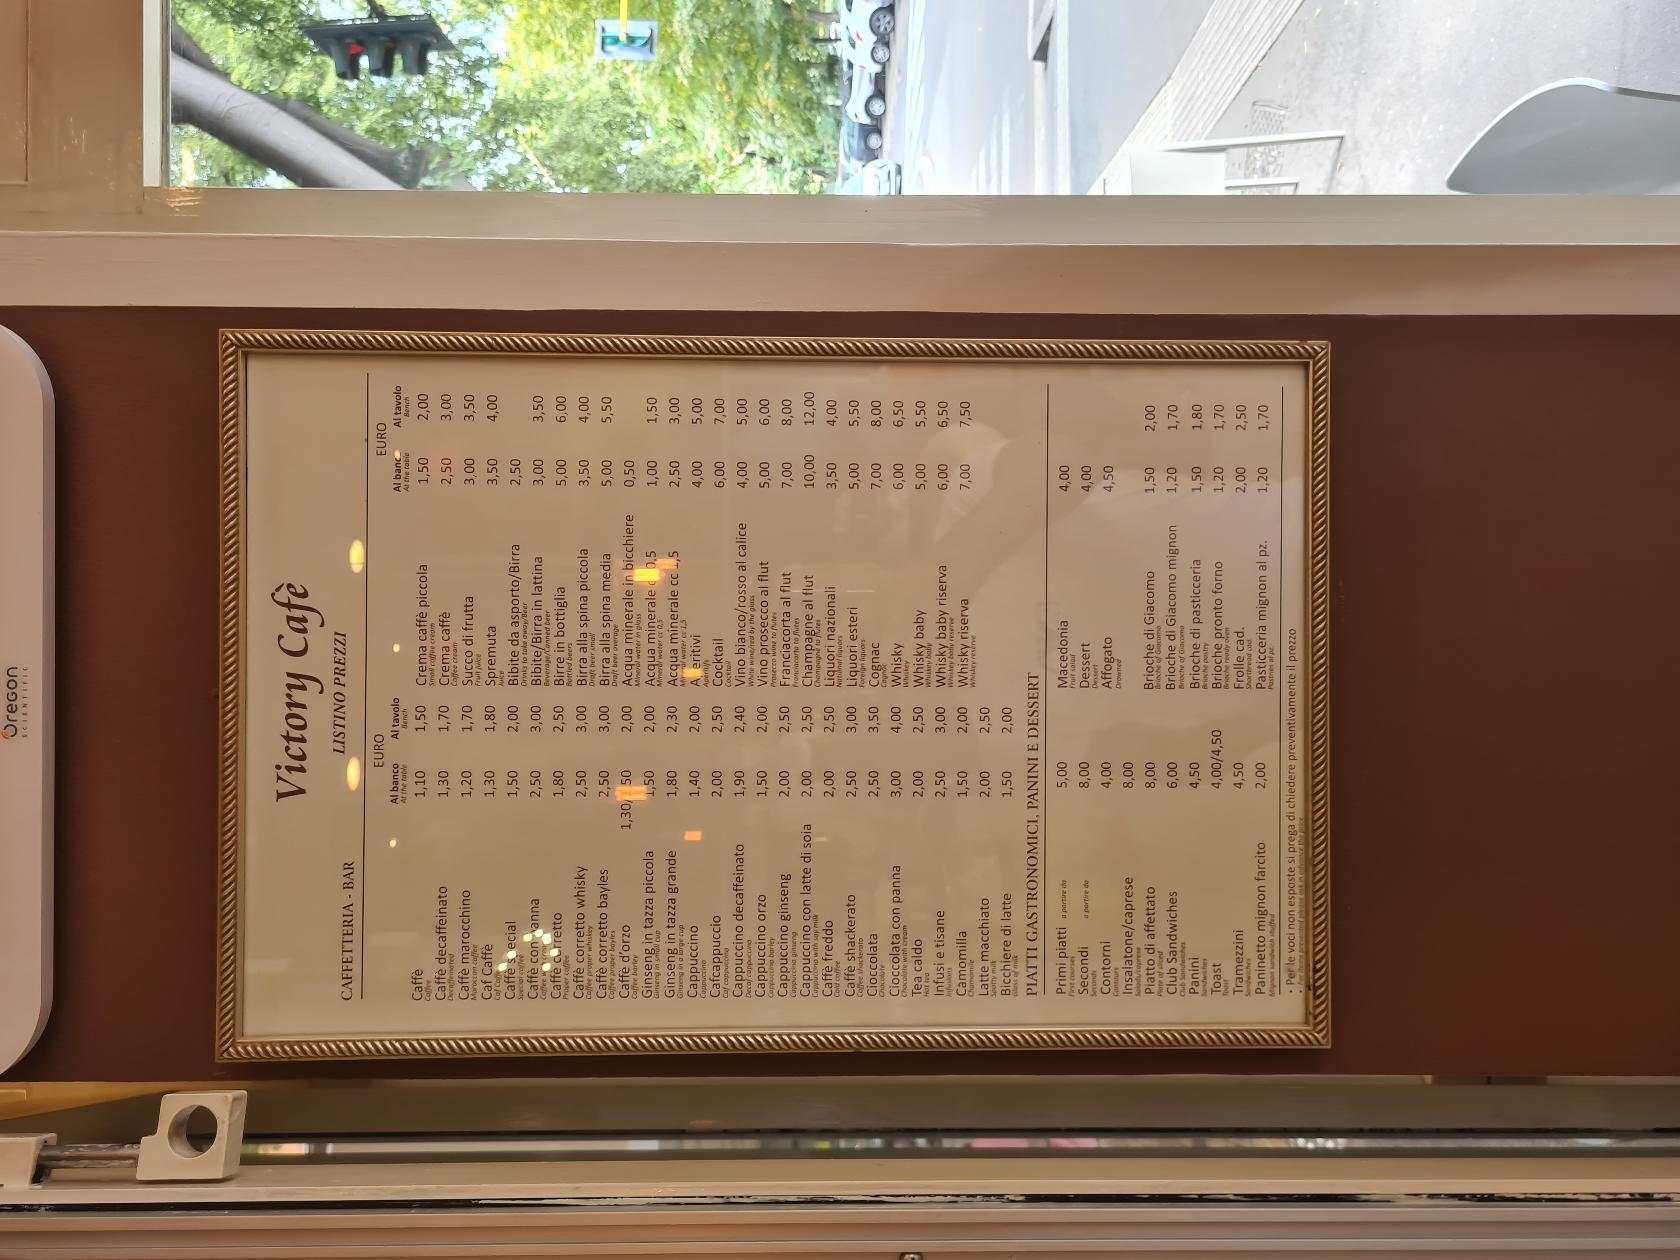 Oregon
SCIENTIFIC
Victory Cafè
LISTINO PREZZI
CAFFETTERIA - BAR
EURO
Al banco Al tavolo
At the table Bench
Caffè 1,10 1,50
Coffee
Caffè decaffeinato 1,30 1,70
Decaffeinated
Caffè marocchino 1,20 1,70
Moroccan coffee
Caf Caffè 1,30 1,80
Caf Caffè
Caffè special 1,50 2,00
Special coffee
Caffè con panna 2,50 3,00
Caffè corretto 1,80 2,50
Proper coffee
Caffè corretto whisky 2,50 3,00
Coffee proper whiskey
Caffè corretto bayles 2,50 3,00
Coffee proper bayles
Caffè d'orzo 1,30/ 2,00
Coffee barley
Ginseng in tazza piccola 1,50 2,00
Ginseng in small cup
Ginseng in tazza grande 1,80 2,30
Ginseng in a large cup
Cappuccino 1,40 2,00
Cappuccino
Cafcappuccio 2,00 2,50
Caf cappuccino
Cappuccino decaffeinato 1,90 2,40
Decaf cappuccino
Cappuccino orzo 1,50 2,00
Cappuccino barley
Cappuccino ginseng 2,00 2,50
Cappuccino ginseng
Cappuccino con latte di soia 2,00 2,50
Cappuccino with soy milk
Caffè freddo 2,00 2,50
Cold coffee
Caffè shackerato 2,50 3,00
Coffee shackerato
Cioccolata 2,50 3,50
Chocolate
Cioccolata con panna 3,00 4,00
Chocolate with cream
Tea caldo 2,00 2,50
Hot tea
Infusi e tisane 2,50 3,00
Infusions
Camomilla 1,50 2,00
Chamomile
Latte macchiato 2,00 2,50
Spotty milk
Bicchiere di latte 1,50 2,00
Glass of milk
EURO
Al banco Al tavolo
At the table Bench
Crema caffè piccola 1,50 2,00
Small coffee cream
Crema caffè 2,50 3,00
Coffee cream
Succo di frutta 3,00 3,50
Fruit juice
Spremuta 3,50 4,00
Juice
Bibite da asporto/Birra 2,50
Drinks to take away/Beer
Bibite/Birra in lattina 3,00 3,50
Beverage/Canned beer
Birre in bottiglia 5,00 6,00
Bottled beers
Birra alla spina piccola 3,50 4,00
Draft beer small
Birra alla spina media 5,00 5,50
Draft beer average
Acqua minerale in bicchiere 0,50
Mineral water in glass
Acqua minerale cc 0,5 1,00 1,50
Mineral water cc 0,5
Acqua minerale cc 1,5 2,50 3,00
Mineral water cc 1,5
Aperitivi 4,00 5,00
Aperitifs
Cocktail 6,00 7,00
Cocktail
Vino bianco/rosso al calice 4,00 5,00
White wine/red by the glass
Vino prosecco al flut 5,00 6,00
Prosecco wine to flutes
Franciacorta al flut 7,00 8,00
Franciacorta to flutes
Champagne al flut 10,00 12,00
Champagne to flutes
Liquori nazionali 3,50 4,00
National liquors
Liquori esteri 5,00 5,50
Foreign liquors
Cognac 7,00 8,00
Cognac
Whisky 6,00 6,50
Whiskey
Whisky baby 5,00 5,50
Whiskey baby
Whisky baby riserva 6,00 6,50
Whiskey baby reserve
Whisky riserva 7,00 7,50
Whiskey reserve
PIATTI GASTRONOMICI, PANINI E DESSERT
Primi piatti a partire da 5,00
First courses
Secondi a partire da 8,00
Seconds
Contorni 4,00
Contours
Insalatone/caprese 8,00
Salads/caprese
Piatto di affettato 8,00
Plate of sliced
Club Sandwiches 6,00
Club Sandwiches
Panini 4,50
Sandwiches
Toast 4,00/4,50
Toast
Tramezzini 4,50
Sandwiches
Paninetto mignon farcito 2,00
Mignon sandwich stuffed
Macedonia 4,00
Fruit salad
Dessert 4,00
Dessert
Affogato 4,50
Drowned
Brioche di Giacomo 1,50 2,00
Brioche of Giacomo
Brioche di Giacomo mignon 1,20 1,70
Brioche of Giacomo
Brioche di pasticceria 1,50 1,80
Brioche pastry
Brioche pronto forno 1,20 1,70
Brioche ready oven
Frolle cad. 2,00 2,50
Shortbread cad.
Pasticceria mignon al pz. 1,20 1,70
Pastries al pz.
• Per le voci non esposte si prega di chiedere preventivamente il prezzo